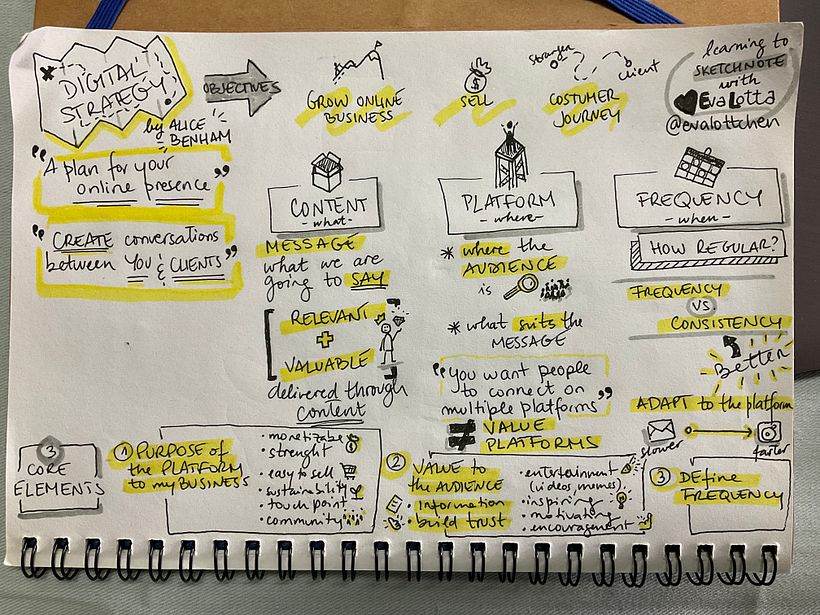 DIGITAL
STRATEGY
by ALICE
BENHAM
OBJECTIVES
GROW ONLINE
BUSINESS
SELL
$
stranger
client
COSTUMER
JOURNEY
learning to
SKETCHNOTE
with
Eva Lotta
@evalottchen
"A plan for your
online presence"
"CREATE conversations
between YOU & CLIENTS"
CONTENT
- what -
MESSAGE
what we are
going to SAY
RELEVANT
+
VALUABLE
delivered through
content
PLATFORM
- where -
* where the
AUDIENCE
is
* what suits the
MESSAGE
"You want people
to connect on
multiple platforms"
≠ VALUE
PLATFORMS
FREQUENCY
- when -
HOW REGULAR?
FREQUENCY
VS
CONSISTENCY
Better
ADAPT to the platform
slower
faster
3
CORE
ELEMENTS
1 PURPOSE of
the PLATFORM
to my BUSINESS
• monetizable
• strenght
• easy to sell
• sustainability
• touch point
• community
2 VALUE to
the AUDIENCE
• Information
• build trust
• entertainment
(videos, memes)
• inspiring
• motivating
• encouragement
3 DEfine
FREQUENCY